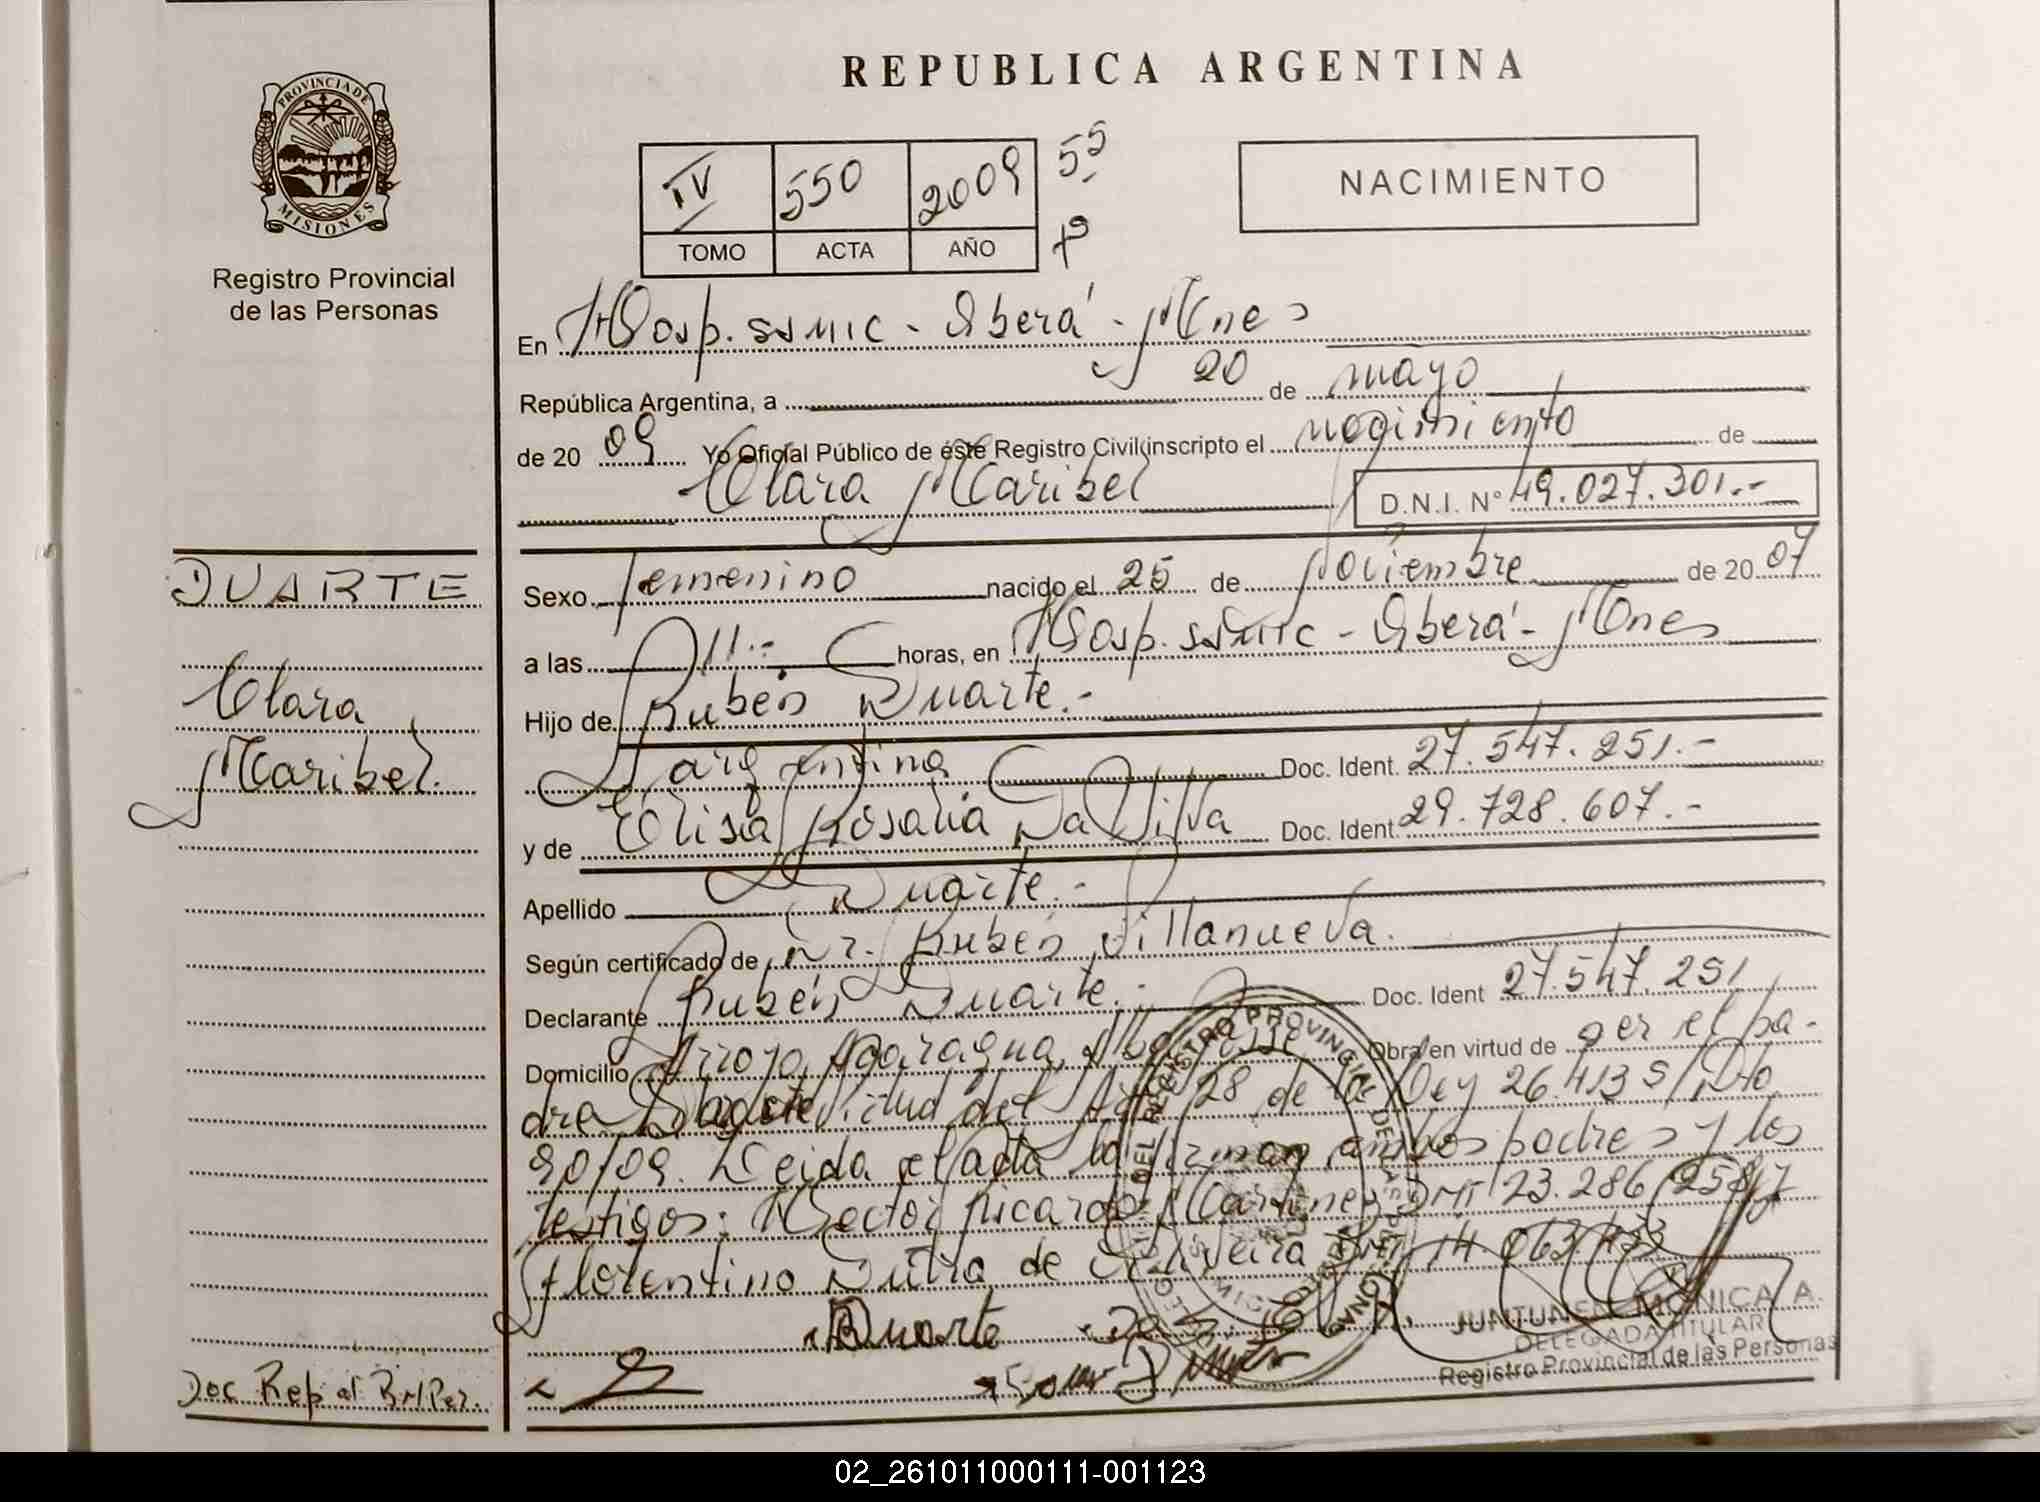 PROVINCIA DE
MISIONES
Registro Provincial
de las Personas
REPUBLICA ARGENTINA
IV 550 2009 55
TOMO ACTA AÑO
NACIMIENTO
En Hosp. SSMIC - Oberá - Mnes
República Argentina, a 20 de mayo
de 20 09 Yo Oficial Público de éste Registro Civil inscripto el nacimiento de
Clara Maribel D.N.I. N° 49.027.301.-
DUARTE
Clara
Maribel.
Sexo femenino nacido el 25 de Noviembre de 20 07
a las 11.- horas, en Hosp. SSMIC - Oberá - Mnes
Hijo de Rubén Duarte.-
argentino Doc. Ident. 27.547.251.-
y de Elisa Rosalia Da Silva Doc. Ident 29.728.607.-
Apellido Duarte.-
Según certificado de Dr. Rubén Villanueva.
Declarante Rubén Duarte.- Doc. Ident 27.547.251
Domicilio Arroyo Acaragua, Obra en virtud de ser el pa-
dre del Art 28 de la Ley 26.413 S/Dto
90/09. Leida el acta la firman ambos padres y los
testigos: Hector Ricardo Martinez DNI 23.286.258 y
Florentino Dutra de Oliveira DNI 14.063.433
Duarte
JUNTUNEN MONICA A.
DELEGADA TITULAR
Registro Provincial de las Personas
DEL REGISTRO PROVINCIAL DE
Doc Rep al R.N.Per.
02_261011000111-001123